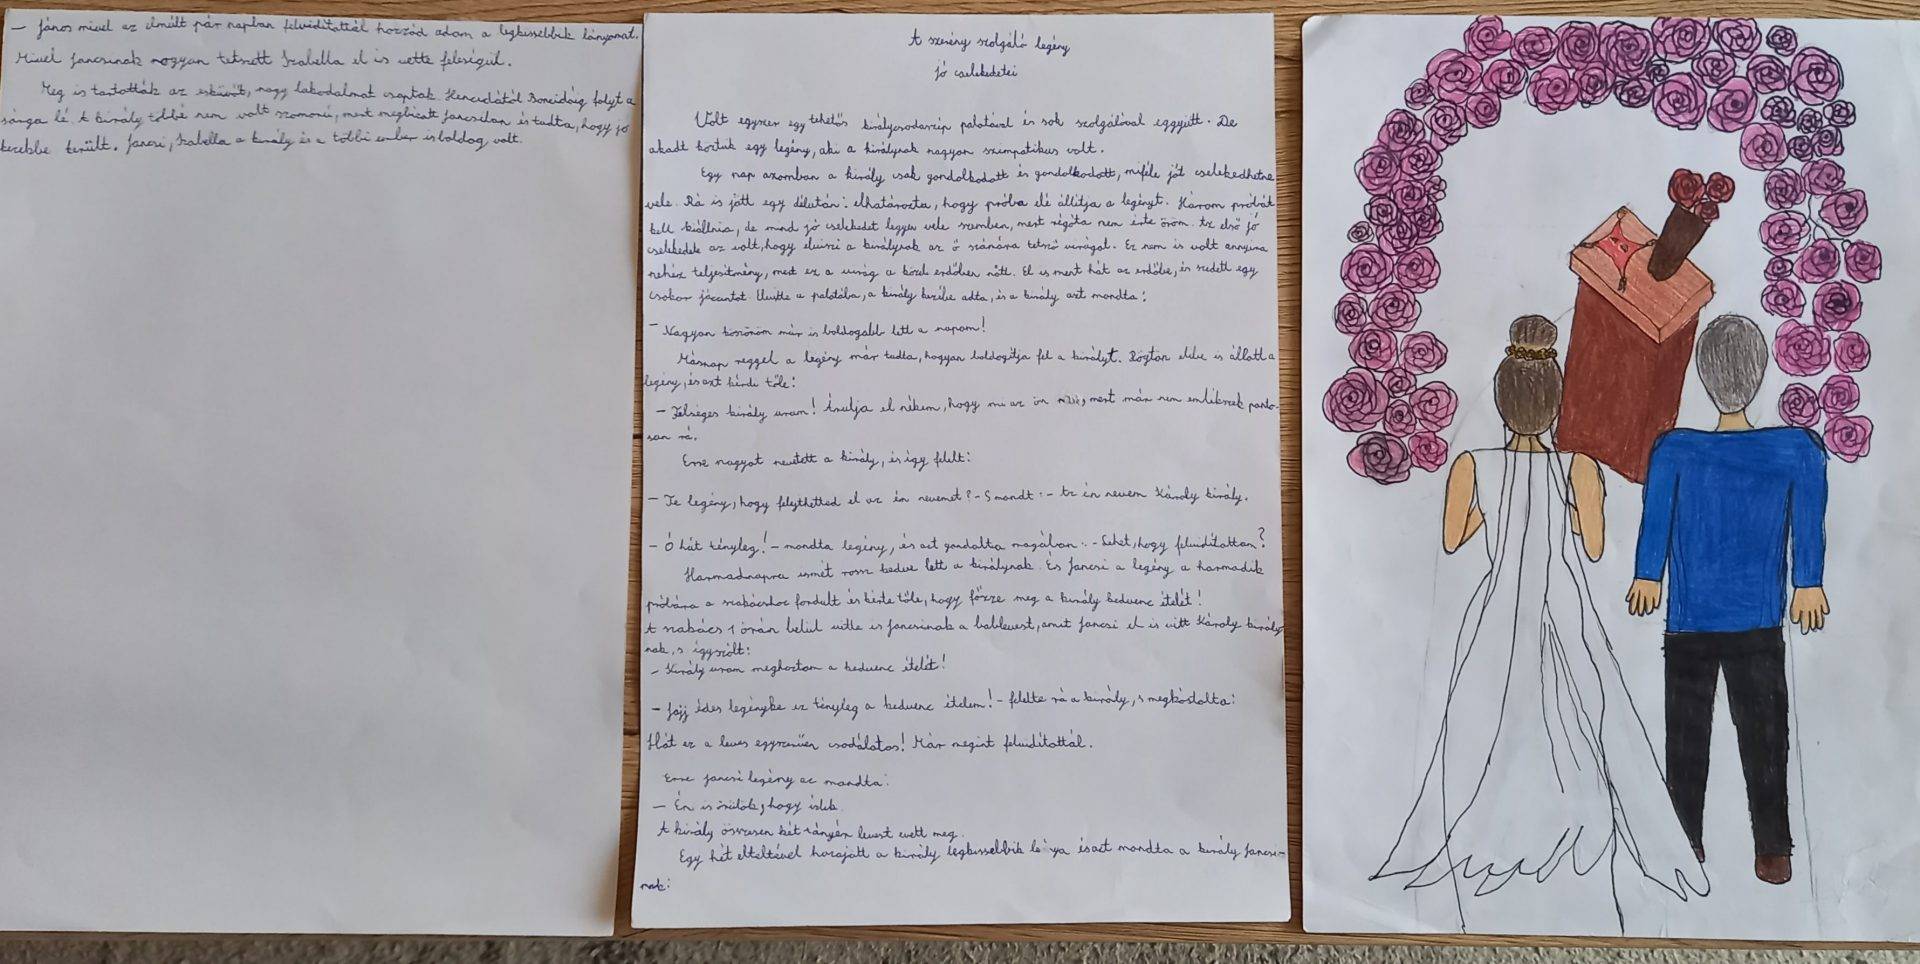 A szerény szolgáló legény
jó cselekedetei
Volt egyszer egy tehetős királycsodaszép palotával és sok szolgálóval eggyütt. De
akadtköztük egy legény, aki a királynak nagyon szimpatikus volt.
Egy nap azomban a király csak gondolkodott és gondolkodott, miféle jót cselekedhetne
vele. Rá is jött egy délután: elhatározta, hogy próba elé állítja a legényt. Három próbát
kell kiállnia, de mind jó cselekedet legyen vele szemben, mert régóta nem érte öröm. Az első jó
cselekedete az volt, hogy elviszi a királynak az ő számára tetsző virágot. Ez nem is volt annyira
nehéz teljesítmény, mert ez a virág a közeli erdőben nőtt. El is ment hát az erdőbe, és szedett egy
csokor jácintot. Elvitte a palotába, a király kezébe adta, és a király azt mondta:
- Nagyon köszönöm már is boldogabb lett a napom!
Másnap reggel a legény már tudta, hogyan boldogítja fel a királyt. Rögtön elébe is állott a
legény, és azt kérdi tőle:
- Felséges király uram! Árulja el nékem, hogy mi az ön neve, mert már nem emlékszek ponto-
san rá.
Erre nagyot nevetett a király, és így felelt:
- Te legény, hogy felejthetted el az én nevemet? - S mondt: - Az én nevem Károly király.
- Ó hát tényleg! - mondta legény, és azt gondolta magában: - Lehet, hogy felvidítottam?
Harmadnapra ismét rossz kedve lett a királynak. És Jancsi a legény a harmadik
próbára a szakácshoz fordult és kérte tőle, hogy főzze meg a király kedvenc ételét!
A szakács 1 órán belül vitte is Jancsinak a bablevest, amit Jancsi el is vitt Károly király-
nak, s így szólt:
- Király uram meghoztam a kedvenc ételét!
- Jajj édes legényke ez tényleg a kedvenc ételem! - felelte rá a király, s megkóstolta:
Hát ez a leves egyszerűen csodálatos! Már megint felvidítottál.
Erre Jancsi legény ac mondta:
- Én is örülök, hogy ízlik.
A király összesen két tányér levest evett meg.
Egy hét elteltével hazajött a király legkissebbik lánya és azt mondta a király Jancsi-
nak:
- János mivel az elmúlt pár napban felvidítottál hozzád adom a legkissebbik lányomat.
Mivel Jancsinak nagyon tetszett Izabella el is vette feleségül.
Meg is tartották az esküvőt, nagy lakodalmat csaptak. Hencidától Boncidáig folyt a
sárga lé. A király többé nem volt szomorú, mert megbízott Jancsiban és tudta, hogy jó
kezekbe került. Jancsi, Izabella a király és a többi ember is boldog volt.